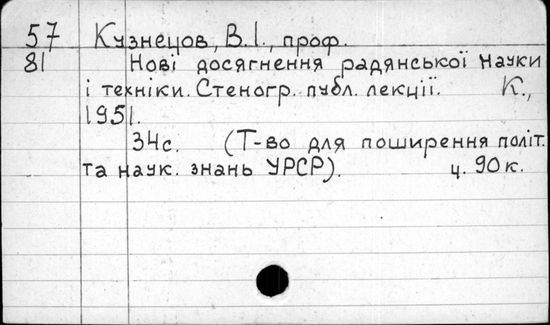 57 Кузнецов, В.І., проф.
81 Нові досягнення радянської науки
і техніки. Стеногр. публ. лекції. К.,
1951.
34с. (Т-во для поширення політ.
та наук. знань УРСР). ц. 90к.